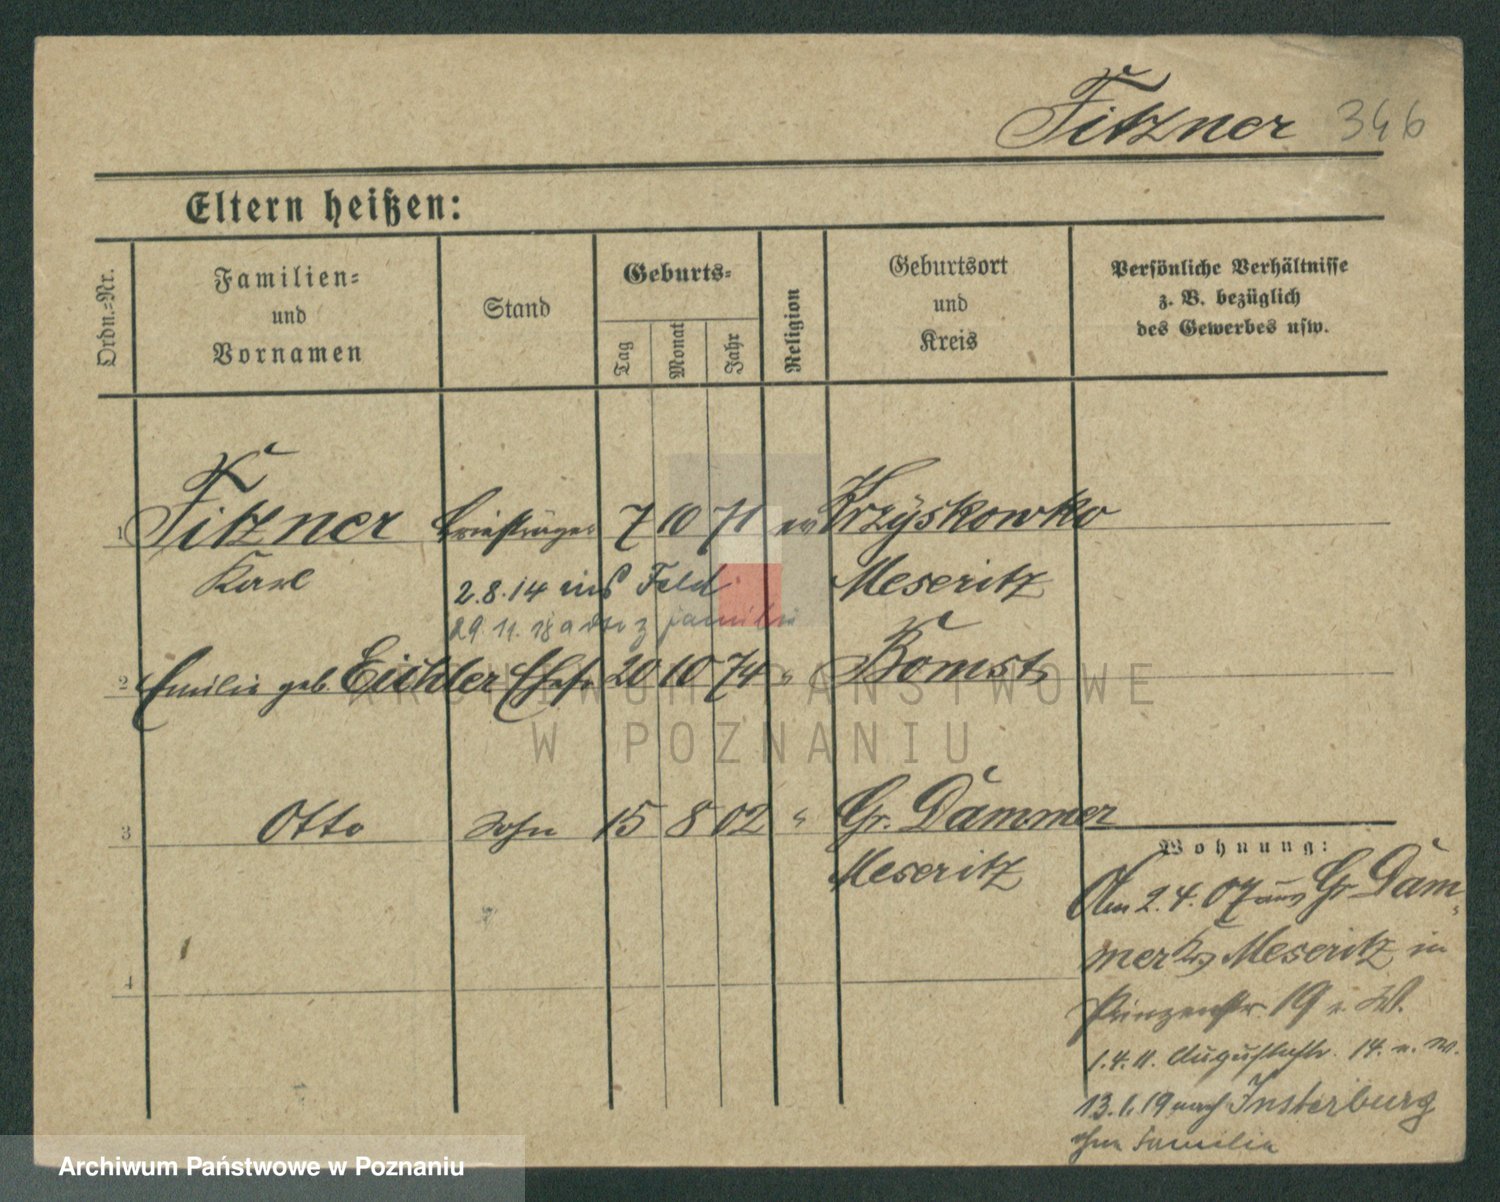 Fitzner 346
Eltern heißen:
Ordn.-Nr.
Familien-
und
Vornamen
Stand
Geburts-
Tag
Monat
Jahr
Religion
Geburtsort
und
Kreis
Persönliche Verhältnisse
z. B. bezüglich
des Gewerbes usw.
1 Fitzner Briefträger 7 10 71 ev Krzyskowko
Karl 2.8.14 ins Feld Meseritz
29.11.18 z familie
2 Emilie geb. Eichler Ehefr 20 10 74 " Bomst
3 Otto Sohn 15 8 02 " Gr. Dammer
Meseritz
Wohnung:
Am 2.4.07 aus Gr Dam-
mer Krs Meseritz in
Prinzenstr. 19 e. W.
1.4.11. Augustastr. 14. e. W.
13.1.19 nach Insterburg
ohne Familie
4
ARCHIWUM PAŃSTWOWE
W POZNANIU
Archiwum Państwowe w Poznaniu